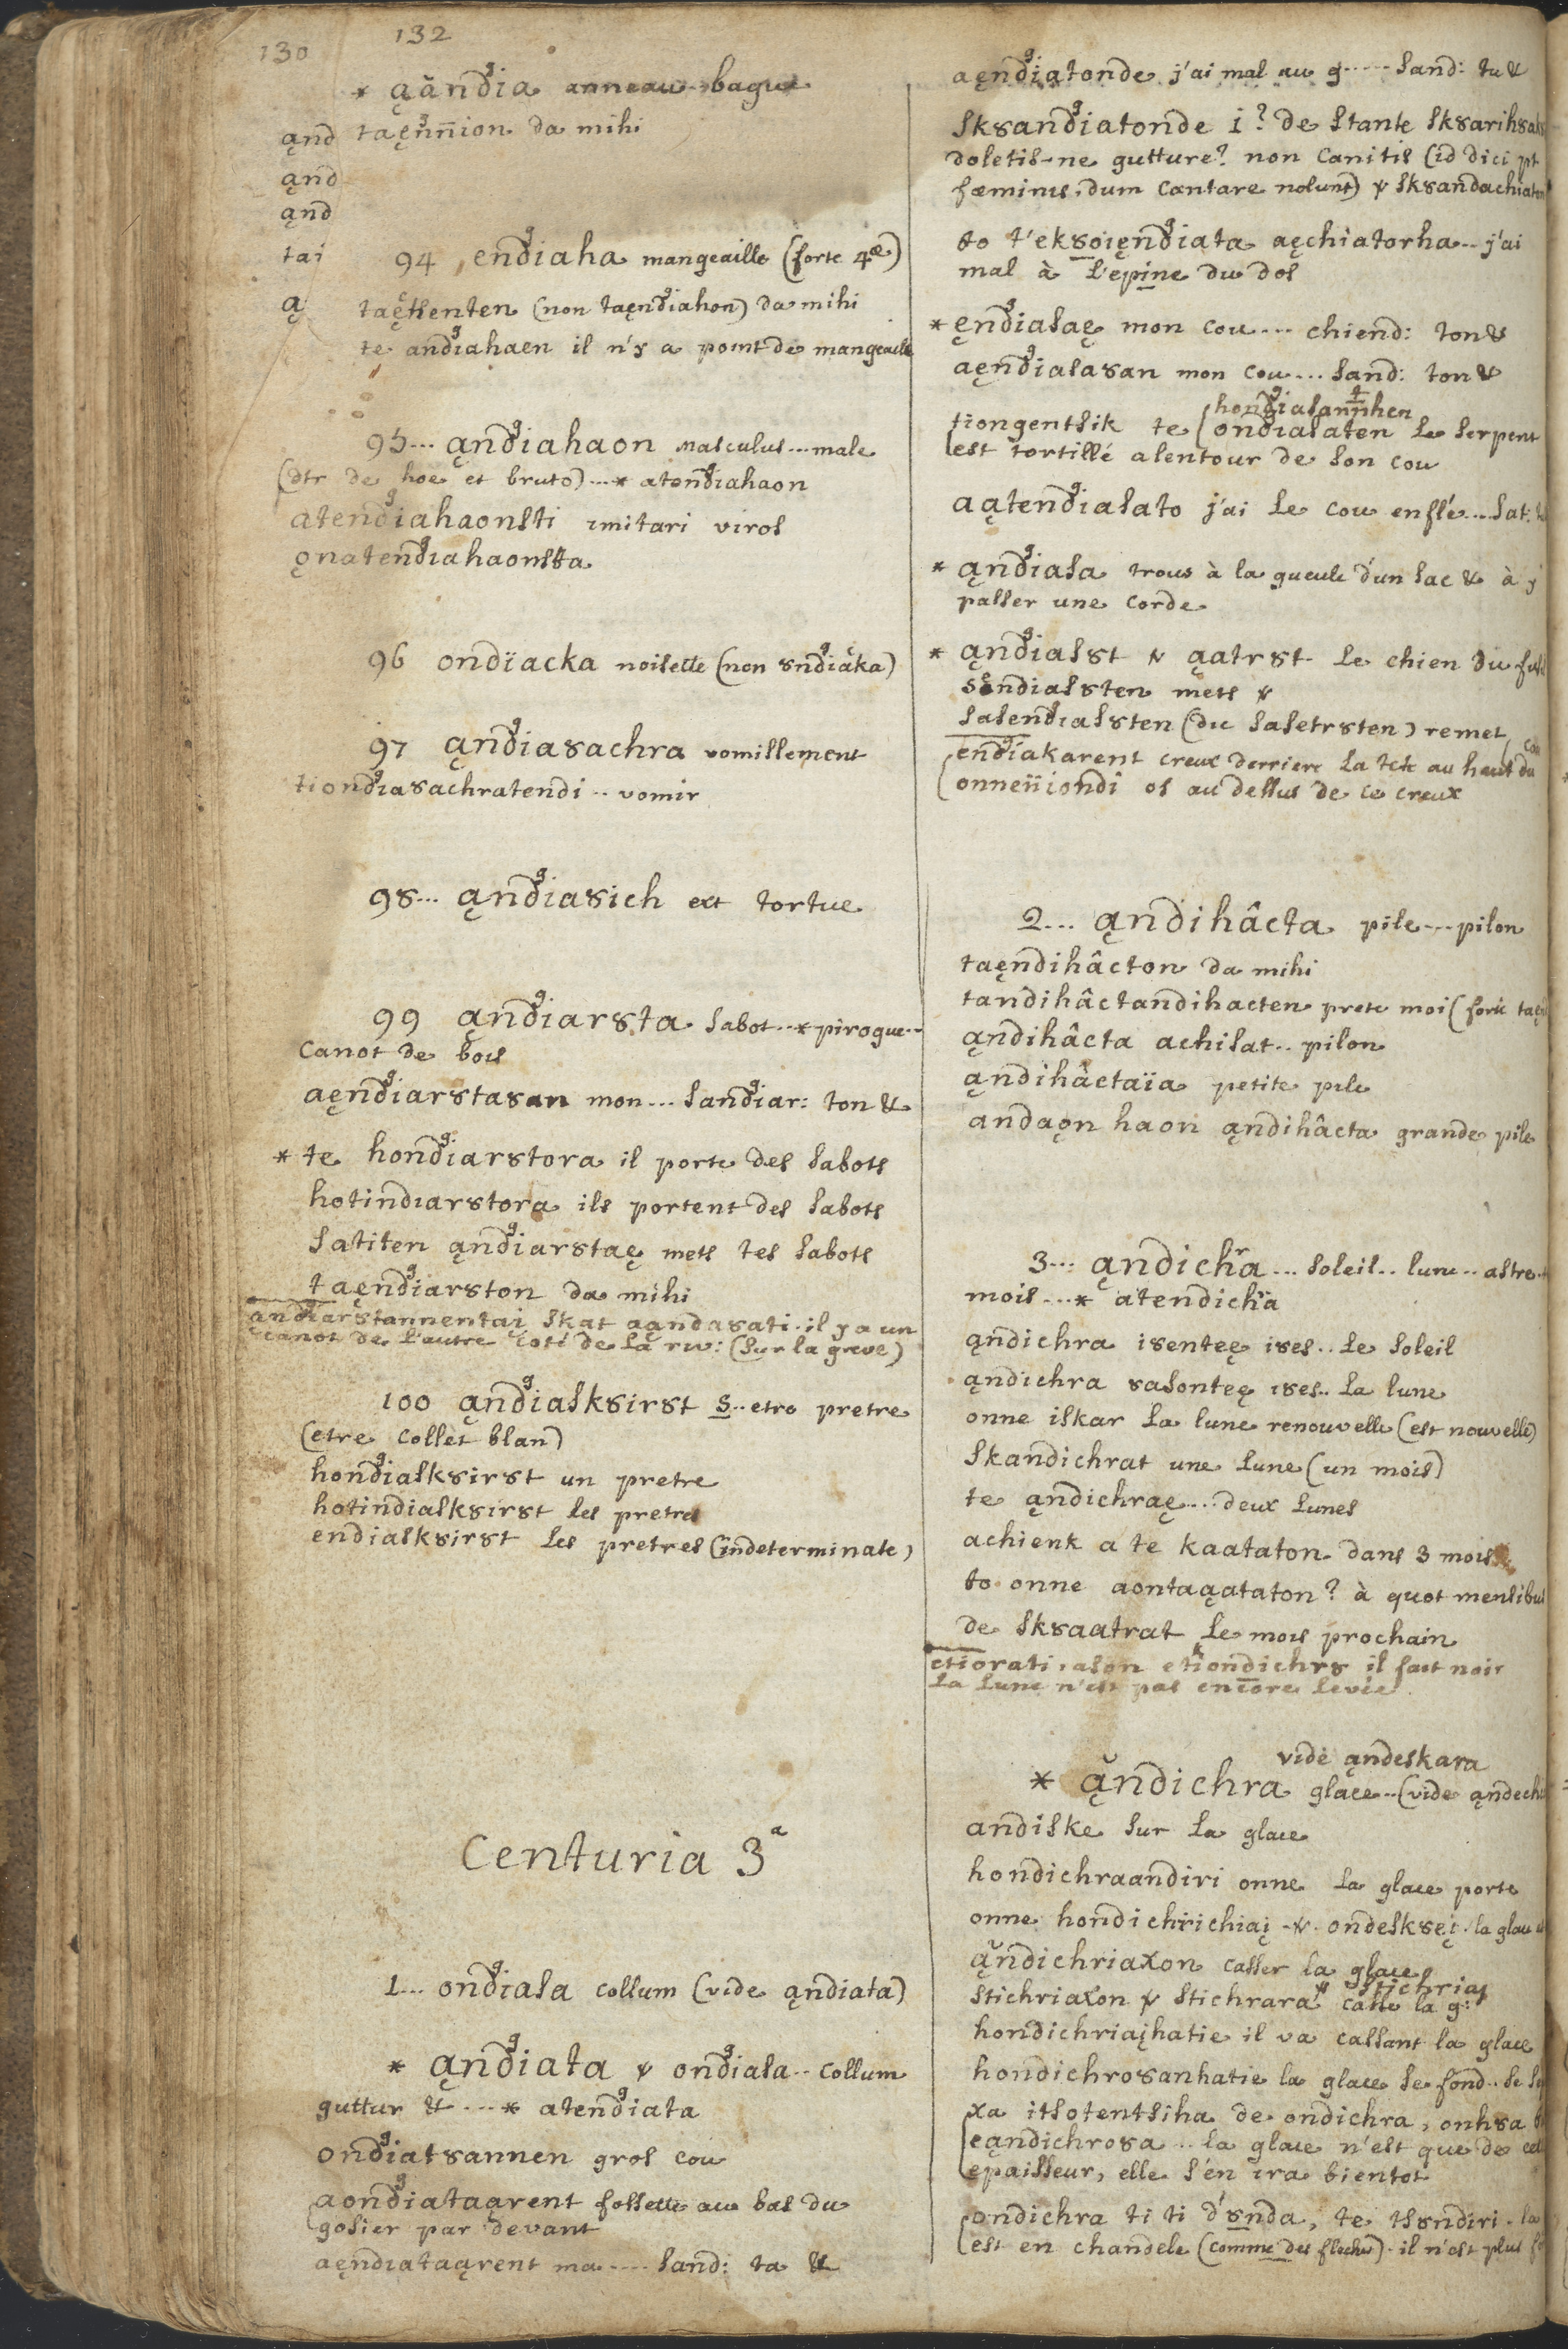 130
132
* ąăndia anneau..bague
ąnd taęnnion da mihi
ąnd
ąnd
tai
ą
94 endiaha mangeaille (forte 4æ)
taętsenten (non taęndiahon) da mihi
te andiahaen il n'y a point de mangeaille
95... ąndiahaon masculus...male
(dtr de hoe et bruto)...* atendiahaon
atendiahaonsti imitari viros
ǫnatendiahaonsta
96 ondiacka noisette (non 8ndiaka)
97 ąndia8achra vomissement
tiondia8achratendi .. vomir
98... ąndia8ich ext tortue
99 ąndiar8ta sabot..*pirogue..
canot de bois
aęndiar8ta8an mon... sandiar: ton &
* te hondiar8tora il porte des sabots
hotindiar8tora ils portent des sabots
satiten ąndiar8taę mets tes sabots
taęndiar8ton da mihi
andiar8tannentai skat aąnda8ati. il y a un
canot de l'autre coté de la riv: (sur la greve)
100 ąndiask8ir8t S..etre pretre
(etre collet blan)
hondiask8ir8t un pretre
hotindiask8ir8t les pretres
endiask8ir8t les pretres (indeterminate)
Centuria 3ª
1... ondiasa collum (vide ąndiata)
* ąndiata & ondiasa.. collum
guttur &....* atendiata
ondiat8annen gros cou
aondiataąrent fossette au bas du
gosier par devant
aęndiataąrent ma.... sand: ta &
aęndiatonde j'ai mal au g..... sand: tu &
sk8andiatonde i? de stante sk8arih8a
doletis-ne gutture? non canitis (id dici pt
fœminis, dum cantare nolunt) & sk8andachiaton
to t'ek8oięndiata aęchiatorha.. j'ai
mal à l'epine du dos
* ęndiasaę mon cou.... chiend: ton &
aęndiasa8an mon cou.... sand: ton &
hondiasannhen
tiongentsik te ondiasaten le serpent
est tortillé alentour de son cou
aątendiasato j'ai le cou enflé... sat:
* ąndiasa trous à la gueule d'un sac & à y
passer une corde
* ąndias8t & ąatr8t le chien du
sendias8ten mets &
sasendias8ten (du sasetr8ten) remet
endiakarent creux derriere la tete au haut du
onneiiondi os au dessus de ce creux
2... ąndihâcta pile...pilon
taęndihâcton da mihi
tandihâctandihacten prete moi (forte
ąndihâcta achisat.. pilon
ąndihâctaïa petite pile
andaǫn haon ąndihâcta grande pile
3... ąndichra... soleil.. lune.. astre..
mois...* atendichra
ąndichra i8enteę ises.. le soleil
ąndichra 8asonteę ises.. la lune
onne iskar la lune renouvelle (est nouvelle)
skandichrat une lune (un mois)
te ąndichraę.... deux lunes
achienk a te kaataton dans 3 mois
to onne aontaąataton? à quot mensibus
de sk8aatrat le mois prochain
etiorati, ason etiondichr8 il fait noir
la lune n'est pas encore levée
vide ąndeskara
* ąndichra glace..(vide ąndech
andiske sur la glace
hondichraandiri onne la glace porte
onne hondichrichiaį & ondesk8eį. la glace
ąndichriaxon casser la glace
stichriaxon & stichrara & stichriaį casse la g:
hondichriaįhatie il va cassant la glace
hondichro8anhatie la glace se fond..
xa itsotentsiha de ondichra, onh8a
eąndichro8a .. la glace n'est que de
epaisseur, elle s'en ira bientot
ondichra ti ti d'8nda, te ts8ndiri. la
est en chandele (comme des fleches). il n'est plus